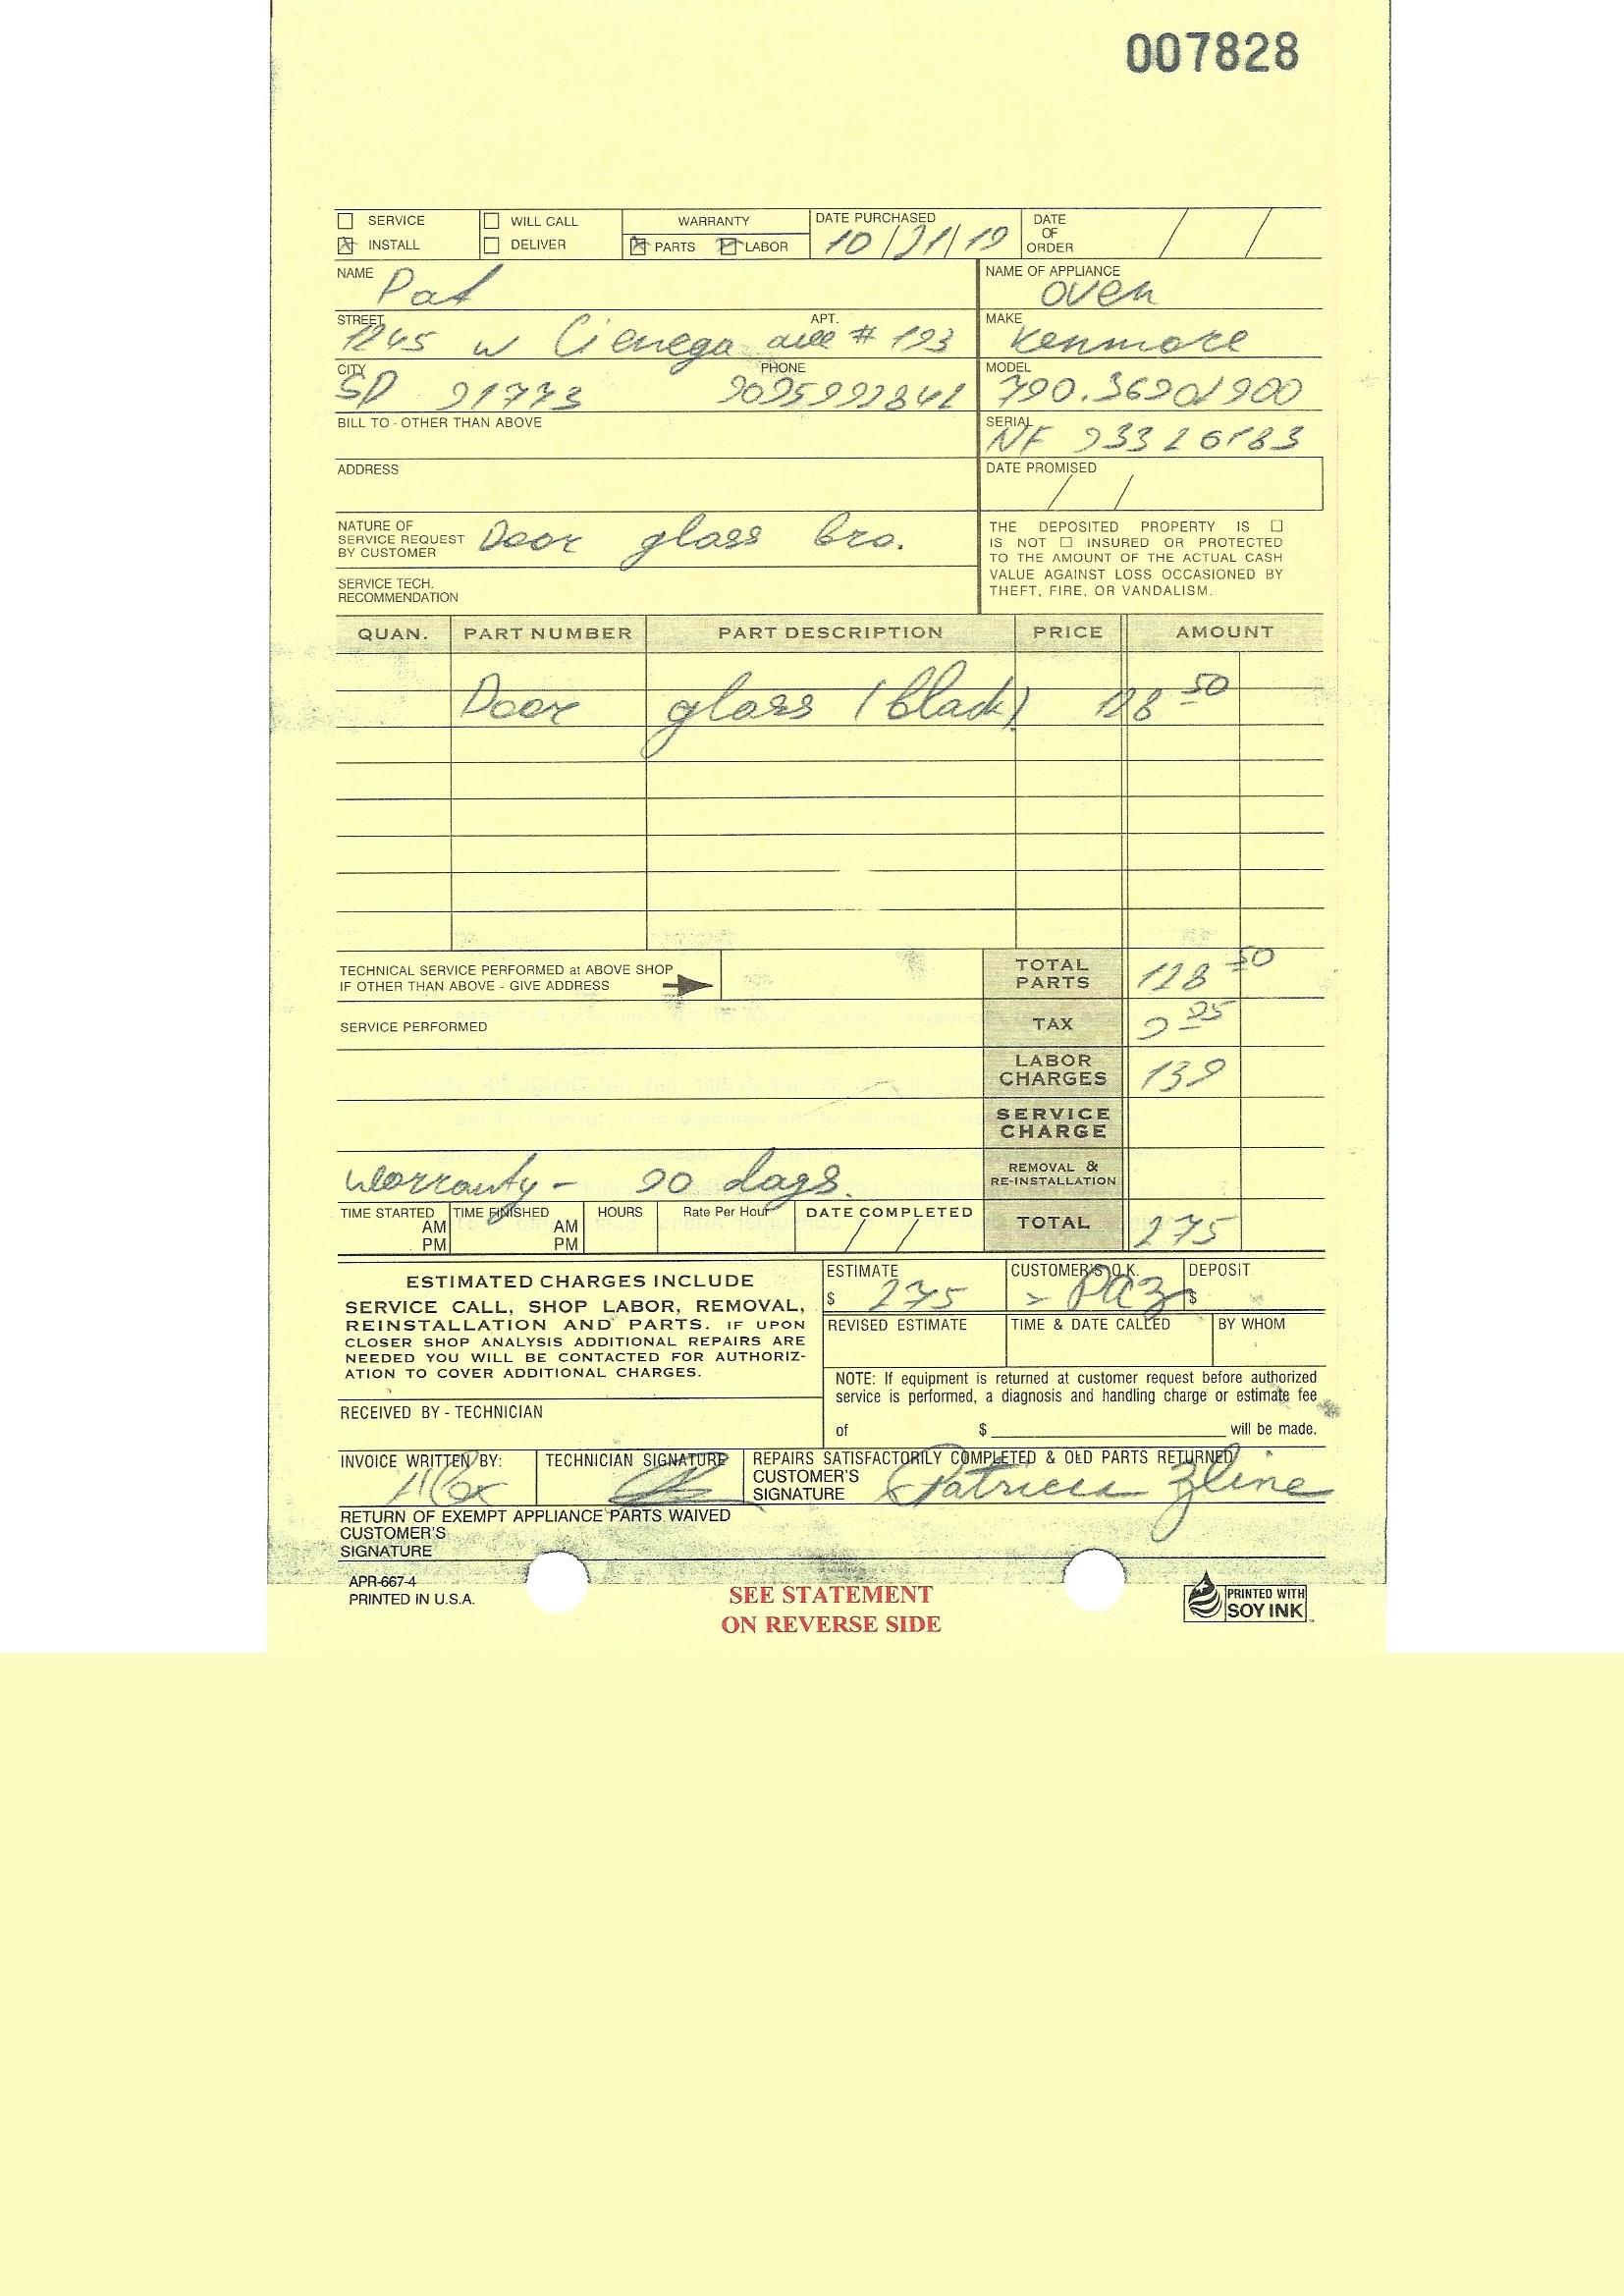 007828
SERVICE WILL CALL WARRANTY DATE PURCHASED DATE OF ORDER
INSTALL DELIVER PARTS LABOR 10/21/19
NAME Pat NAME OF APPLIANCE oven
STREET 1245 w Cienega ave APT. # 193 MAKE Kenmore
CITY SD 91773 PHONE 9095992841 MODEL 790.36901900
BILL TO - OTHER THAN ABOVE SERIAL NF
ADDRESS DATE PROMISED / /
NATURE OF SERVICE REQUEST BY CUSTOMER Door glass bro.
THE DEPOSITED PROPERTY IS
IS NOT INSURED OR PROTECTED
TO THE AMOUNT OF THE ACTUAL CASH
VALUE AGAINST LOSS OCCASIONED BY
THEFT, FIRE, OR VANDALISM.
SERVICE TECH. RECOMMENDATION
QUAN. PART NUMBER PART DESCRIPTION PRICE AMOUNT
Door glass (black) 128 50
TECHNICAL SERVICE PERFORMED at ABOVE SHOP
IF OTHER THAN ABOVE - GIVE ADDRESS
TOTAL PARTS 128 50
SERVICE PERFORMED TAX
LABOR CHARGES 139
SERVICE CHARGE
Warranty - 90 days. REMOVAL & RE-INSTALLATION
TIME STARTED AM PM TIME FINISHED AM PM HOURS Rate Per Hour DATE COMPLETED / / TOTAL 275
ESTIMATED CHARGES INCLUDE
SERVICE CALL, SHOP LABOR, REMOVAL,
REINSTALLATION AND PARTS. IF UPON
CLOSER SHOP ANALYSIS ADDITIONAL REPAIRS ARE
NEEDED YOU WILL BE CONTACTED FOR AUTHORIZ-
ATION TO COVER ADDITIONAL CHARGES.
ESTIMATE $ 275 CUSTOMER'S O.K. DEPOSIT $
REVISED ESTIMATE TIME & DATE CALLED BY WHOM
NOTE: If equipment is returned at customer request before authorized
service is performed, a diagnosis and handling charge or estimate fee
of $ will be made.
RECEIVED BY - TECHNICIAN
INVOICE WRITTEN BY: Alex TECHNICIAN SIGNATURE REPAIRS SATISFACTORILY COMPLETED & OLD PARTS RETURNED
CUSTOMER'S SIGNATURE Patricia
RETURN OF EXEMPT APPLIANCE PARTS WAIVED
CUSTOMER'S
SIGNATURE
APR-667-4
PRINTED IN U.S.A.
SEE STATEMENT
ON REVERSE SIDE
PRINTED WITH
SOY INK